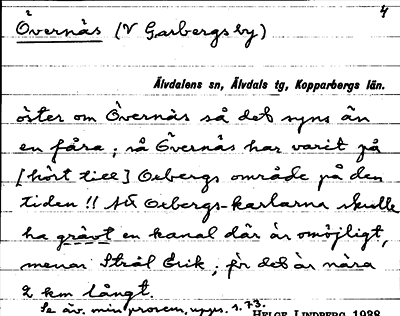 4
Övernäs (V Garbergs by)
Älvdalens sn, Älvdals tg, Kopparbergs län.
öster om Övernäs så det syns än
en fåra; så Övernäs har varit på
[hört till] Oxbergs område på den
tiden !! Att Oxbergs-karlarna skulle
ha grävt en kanal där är omöjligt,
menar Strål Erik, för det är nära
2 km långt.
Se äv. min provex, upps. s. 73.
HELGE LINDBERG 1988